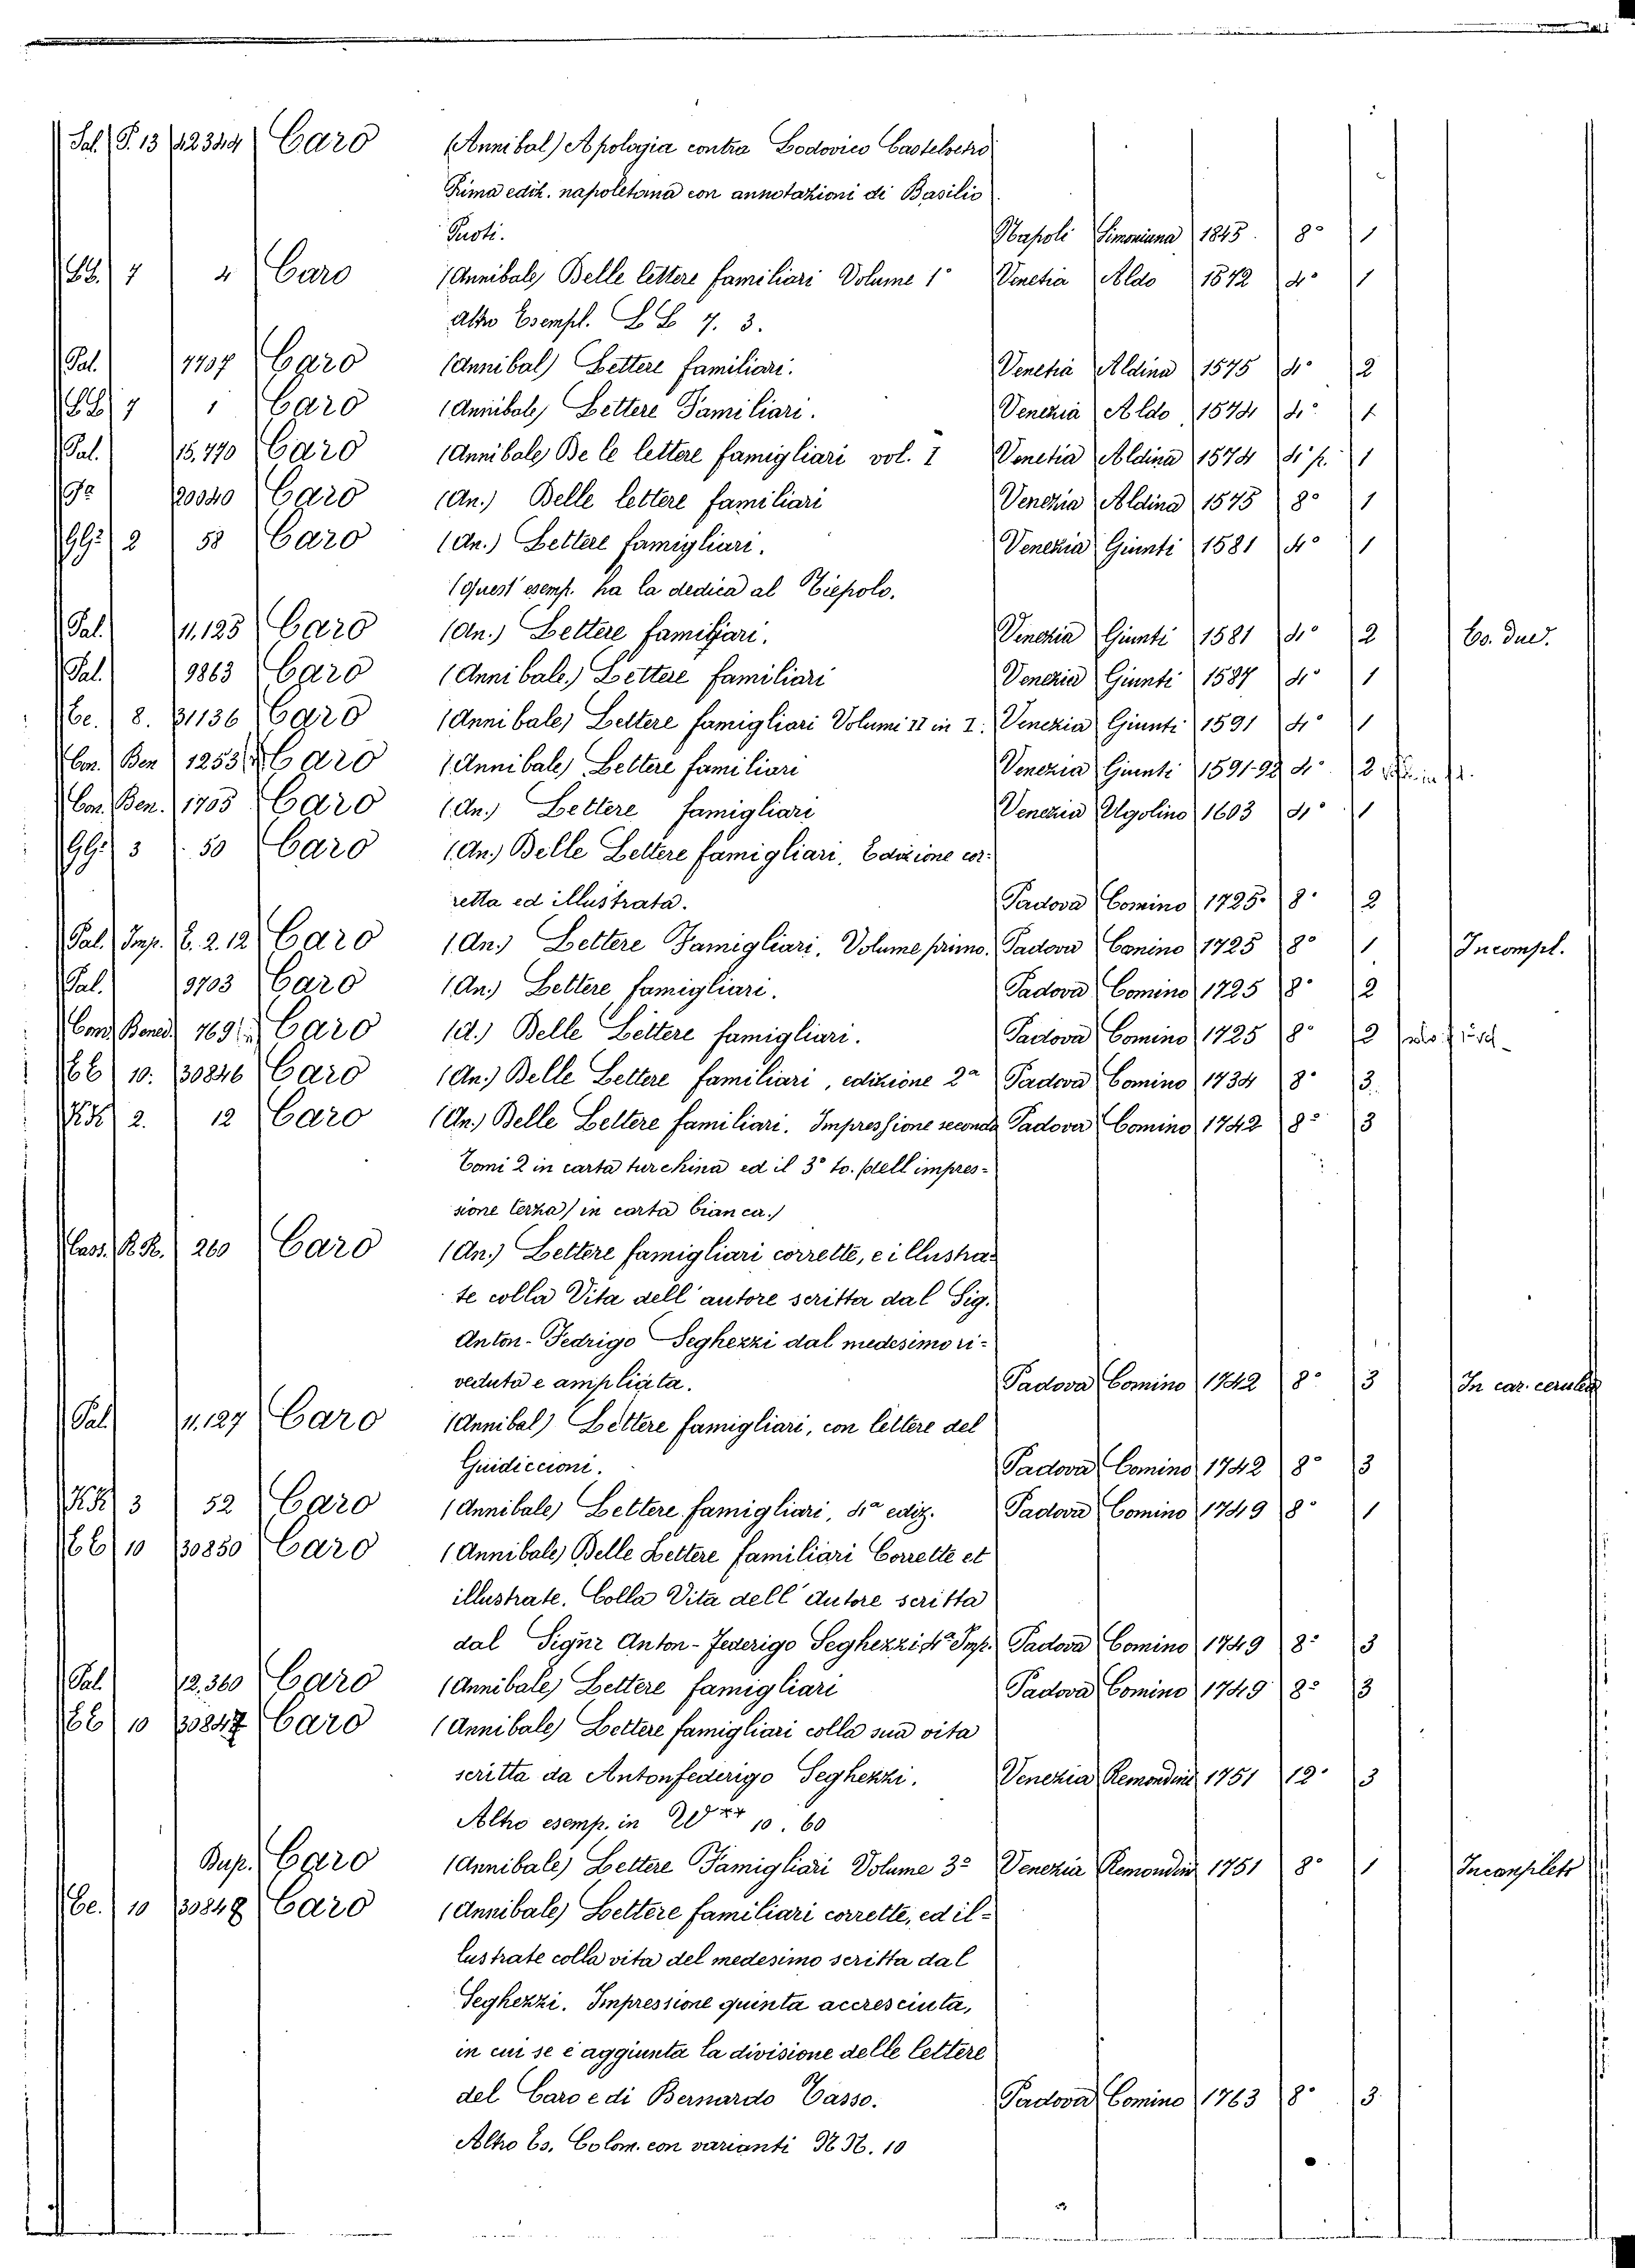 Sal. P. 13 12344 Caro (Annibal) Apologia contra Lodovico Castelvetro
Prima ediz. napoletana con annotazioni di Basilio
Puoti. Napoli Simoniana 1845 8° 1
7 4 Caro (Annibale) Belle lettere familiari Volume 1° Venetia Aldo 1572 4° 1
Altro Esempl. L L 7. 3.
Pal. 7707 Caro (Annibal) Lettere familiari. Venetia Aldina 1575 4° 2
7 1 Caro (Annibale) Lettere Familiari. Venezia Aldo 1574 4° 1
Pal. 15.770 Caro (Annibale) De le lettere famigliari vol. I Venetia Aldina 1574 4° p. 1
20040 Caro (An.) Belle lettere familiari Venezia Aldina 1575 8° 1
GG. 2 58 Caro (An.) Lettere famigliari. Venezia Giunti 1581 4° 1
(Quest' esemp. ha la dedica al Tiepolo.
Pal. 11.125 Caro (An.) Lettere famigliari. Venezia Giunti 1581 4° 2 Co. due.
Pal. 9863 Caro (Annibale.) Lettere familiari Venezia Giunti 1587 4° 1
Ce. 8. 31136 Caro (Annibale) Lettere famigliari Volumi II in I. Venezia Giunti 1591 4° 1
Con. Ben 1253 Caro (Annibale) Lettere familiari Venezia Giunti 1591-92 4° 2 in 1.
Con. Ben. 1705 Caro (An.) Lettere famigliari Venezia Ugolino 1603 4° 1
GG. 3 50 Caro (An.) Belle Lettere famigliari, Edizione cor-
retta ed illustrata. Padova Comino 1725. 8° 2
Pal. Imp. E. 2. 12 Caro (An.) Lettere Famigliari, Volume primo. Padova Comino 1725 8° 1 Incompl.
Pal. 9703 Caro (An.) Lettere famigliari. Padova Comino 1725 8° 2
Cons. Bened. 769 Caro (A.) Belle Lettere famigliari. Padova Comino 1725 8° 2
CC 10. 30846 Caro (An.) Belle Lettere familiari, edizione 2a Padova Comino 1734 8° 3.
KK 2. 12 Caro (An.) Belle Lettere familiari. Impressione seconda Padova Comino 1742 8° 3
Tomi 2 in carta turchina ed il 3° to. (dell impres-
sione terza) in carta bianca.)
Cass. R.R. 260 Caro (An.) Lettere famigliari corrette, e illustra-
te colla Vita dell' autore scritta dal Sig.
Anton-Fedrigo Seghezzi dal medesimo ri-
veduta e ampliata. Padova Comino 1742 8° 3 In car. cerulea
Pal. 11.127 Caro (Annibal) Lettere famigliari, con lettere del
Guidiccioni. Padova Comino 1742 8° 3
KK 3 52 Caro (Annibale) Lettere famigliari, 4a ediz. Padova Comino 1749 8° 1
CC 10 30850 Caro (Annibale) Belle Lettere familiari Corrette et
illustrate. Colla Vita dell' Autore scritta
dal Signr Anton-Federigo Seghezzi 4a Imp. Padova Comino 1749 8° 3
Pal. 12.360 Caro (Annibale) Lettere famigliari Padova Comino 1749 8° 3
CC 10 30847 Caro (Annibale) Lettere famigliari colla sua vita
scritta da Antonfederigo Seghezzi. Venezia Remondini 1751 12° 3
Altro esemp. in 10. 60
Dup. Caro (Annibale) Lettere Famigliari Volume 3° Venezia Remondini 1751 8° 1 Incompleto
Ce. 10 30848 Caro (Annibale) Lettere familiari corrette, ed il-
lustrate colla vita del medesimo scritta dal
Seghezzi. Impressione quinta accresciuta,
in cui se è aggiunta la divisione delle lettere
del Caro e di Bernardo Tasso. Padova Comino 1763 8° 3
Altro Es. Colom. con varianti N N. 10